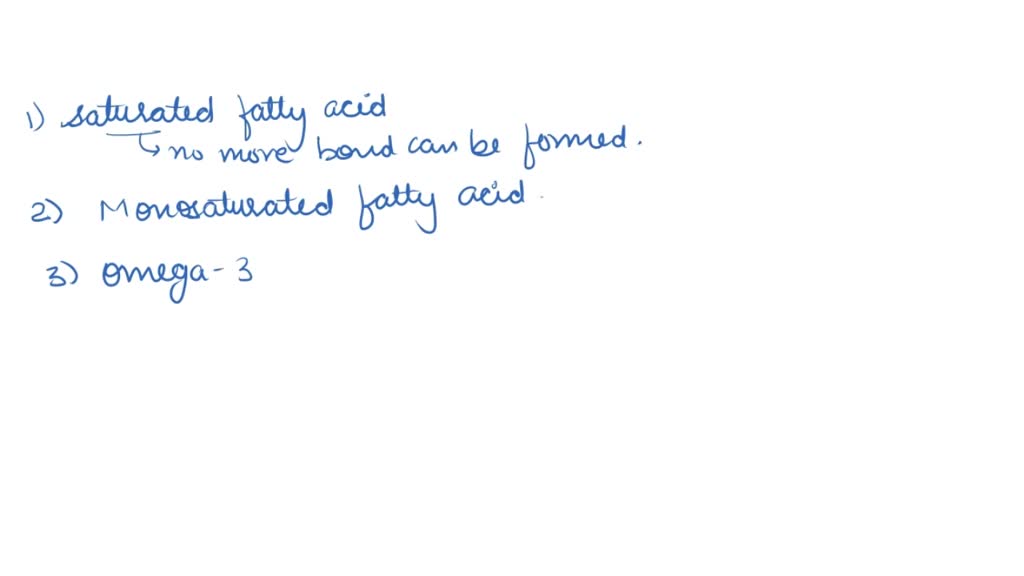 1) saturated fatty acid
↳ no more bond can be formed.
2) Monosaturated fatty acid.
3) omega-3